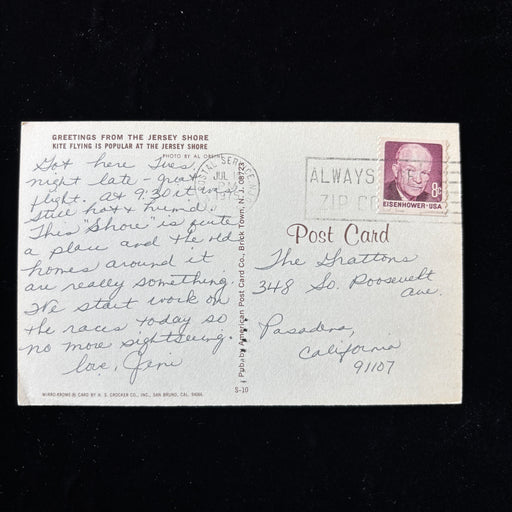 GREETINGS FROM THE JERSEY SHORE
KITE FLYING IS POPULAR AT THE JERSEY SHORE
PHOTO BY AL
Got here Tues.
night late - great
flight. At 9:30 it was
still hot & humid.
This "Shore" is quite
a place and the old
homes around it
are really something.
We start work on
the races today so
no more sightseeing.
love, Jeni
MIRRO-KROME ® CARD BY H. S. CROCKER CO., INC., SAN BRUNO, CAL. 94066
S-10
Pub. by American Post Card Co., Brick Town, N. J. 08723
POSTAL SERVICE NJ
JUL
1975
ALWAYS USE
ZIP CODE
8¢
EISENHOWER·USA
Post Card
The Grattons
348 So. Roosevelt
Ave.
Pasadena,
California
91107